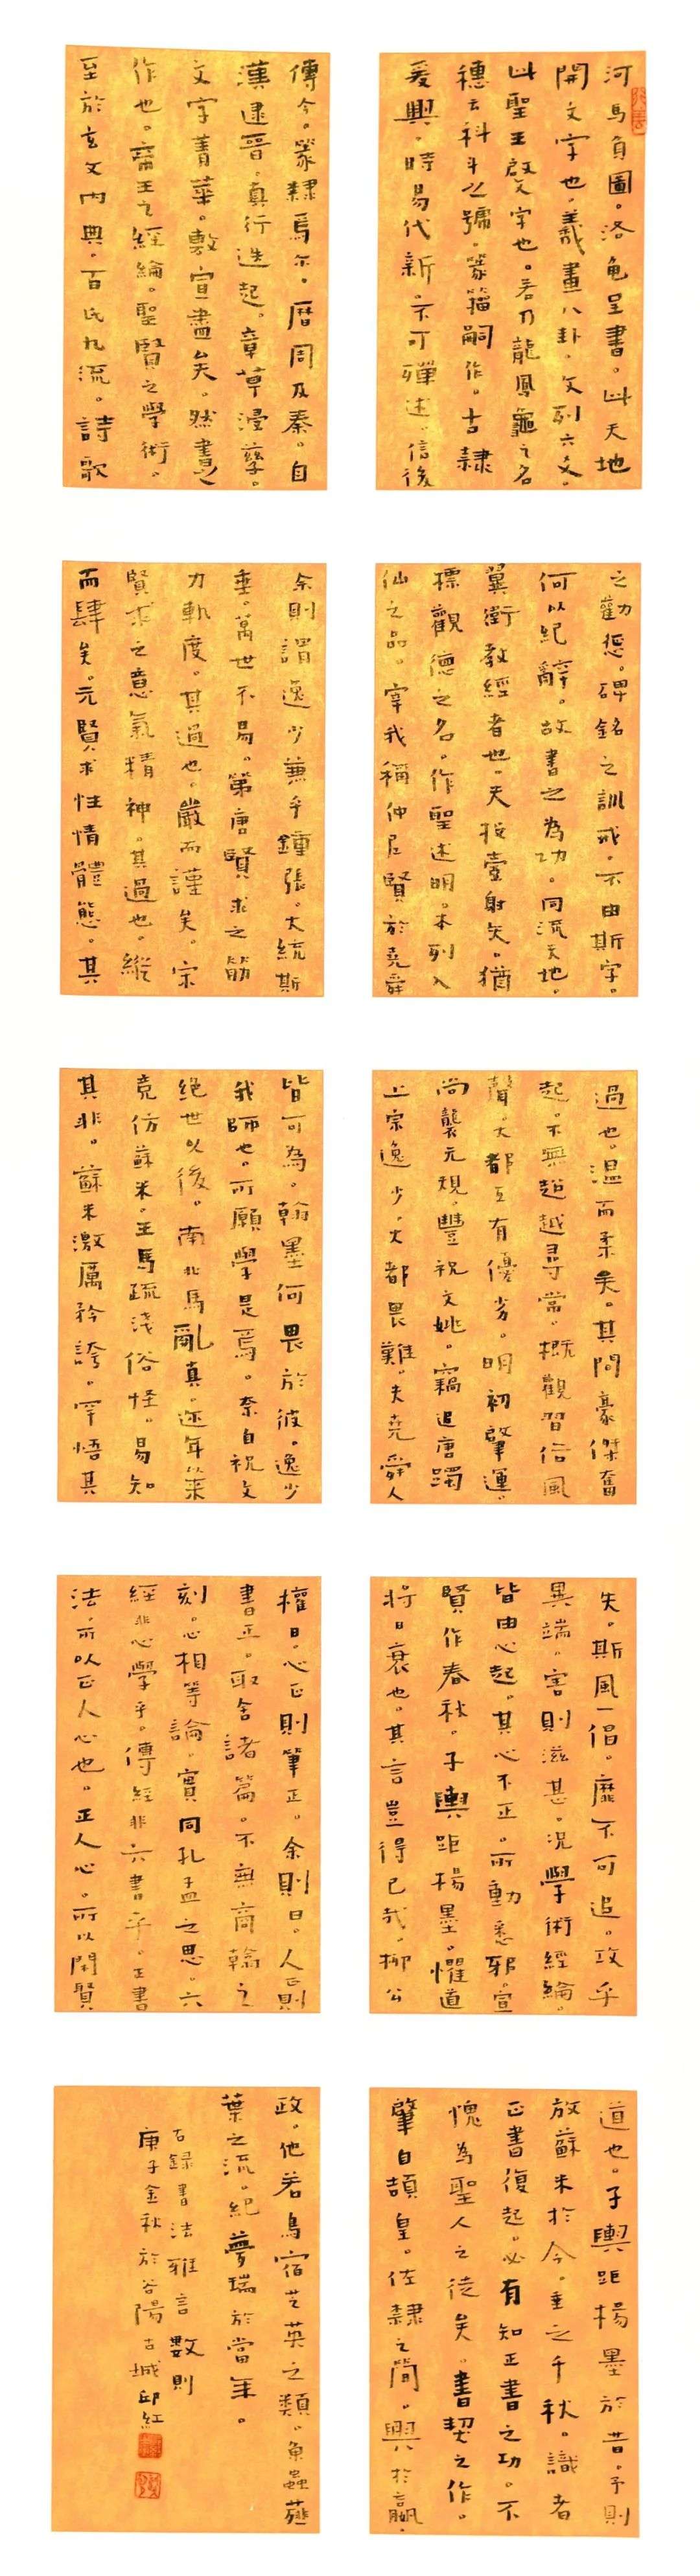 河馬負圖。洛龜呈書。此天地
開文字也。羲畫八卦。文列六爻。
此聖王啟文字也。若乃龍鳳龜之名
穗云科斗之號。篆籀嗣作。古隸
爰興。時易代新。不可殫述。信後
傳今。篆隸焉尒。曆周及秦。自
漢逮晉。真行迭起。章草浸孳。
文字菁華。敷宣盡矣。然書之
作也。帝王之經綸。聖賢之學術。
至於玄文內典。百氏九流。詩歌
之勸懲。碑銘之訓戒。不由斯字。
何以紀辭。故書之為功。同流天地。
翼衛教經者也。夫投壺射矢。猶
標觀德之名。作聖述明。本列入
仙之品。宰我稱仲尼賢於堯舜
余則謂逸少兼乎鍾張。大統斯
垂。萬世不易。第唐賢求之筋
力軌度。其過也。嚴而謹矣。宋
賢求之意氣精神。其過也。縱
而肆矣。元賢求性情體態。其
過也。溫而柔矣。其間豪傑奮
起。不無超越尋常。概觀習俗風
聲。大都互有優劣。明初肇運。
尚襲元規。豐祝文姚。竊追唐躅
上宗逸少。大都畏難。夫堯舜人
皆可為。翰墨何畏於彼。逸少
我師也。所願學是焉。奈自祝文
絕世以後。南北馬亂真。迩年以來
竞仿蘇米。王馬疏淺俗怪。易知
其非。蘇米激厲矜誇。罕悟其
失。斯風一倡。靡不可追。攻乎
異端。害則滋甚。況學術經綸。
皆由心起。其心不正。所動悉邪。宣
賢作春秋。子輿距楊墨。懼道
將日衰也。其言豈得已哉。柳公
權曰。心正則筆正。余則曰。人正則
書正。取舍諸篇。不無商翰之
刻。心相等論。實同孔孟之思。六
經非心學乎。傳經非六書乎。正書
法。所以正人心也。正人心。所以閑賢
道也。子輿距楊墨於昔。予則
放蘇米於今。垂之千秋。識者
正書復起。必有知正書之功。不
愧為聖人之徒矣。書契之作。
肇自頡皇。佐隸之簡。興於嬴
政。他若鳥宿芝英之類。魚蟲薤
葉之流。紀夢瑞於當年。
右錄書法雅言數則
庚子金秋於谷陽古城邱紅